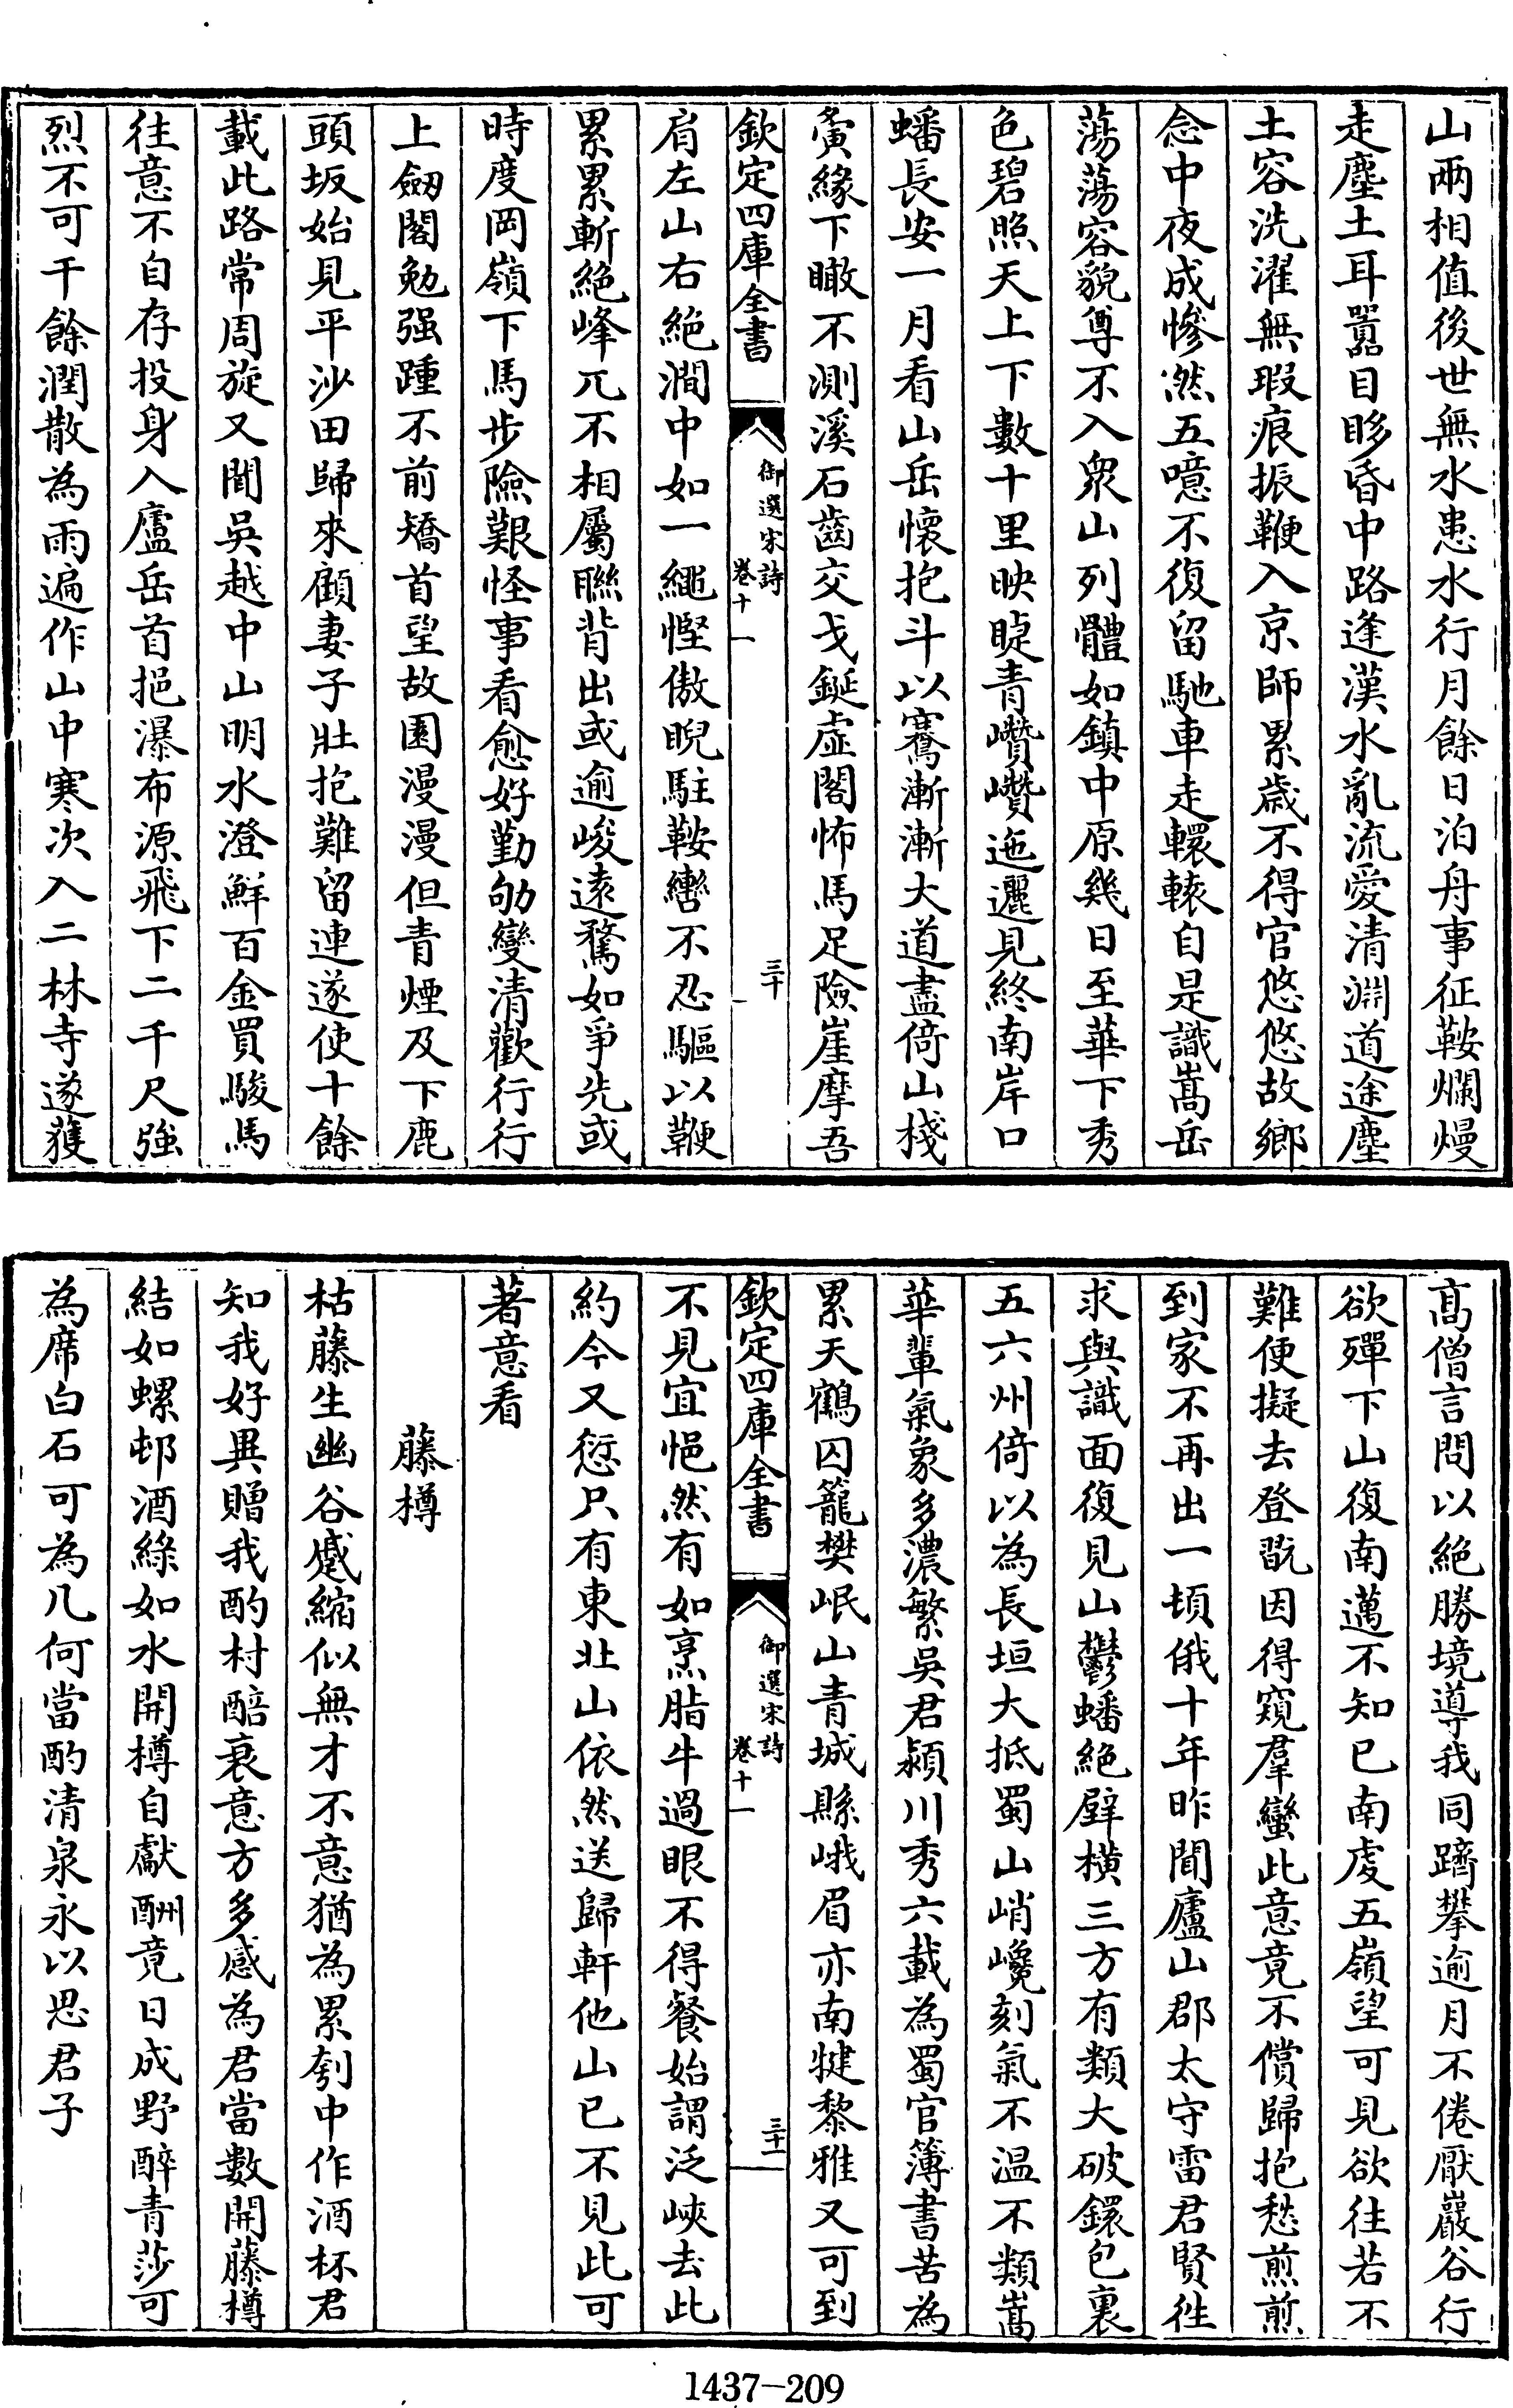 山兩相值後世無水患水行月餘日泊舟事征鞍爛熳
走塵土耳囂目眵昏中路逢漢水亂流愛清淵道途塵
土容洗濯無瑕痕振鞭入京師累歲不得官悠悠故鄉
念中夜成慘然五噫不復留馳車走轘轅自是識嵩岳
蕩蕩容貌尊不入衆山列體如鎮中原幾日至華下秀
色碧照天上下數十里映睫青巑巑迤邐見終南岸口
蟠長安一月看山岳懷抱斗以騫漸漸大道盡倚山棧
夤緣下瞰不測溪石齒交戈鋋虛閣怖馬足險崖摩吾
欽定四庫全書
御選宋詩
卷十一
三十
肩左山右絶澗中如一繩慳傲睨駐鞍轡不忍驅以鞭
累累斬絶峰兀不相屬聯背出或逾峻遠騖如爭先或
時度岡嶺下馬步險艱怪事看愈好勤劬變清歡行行
上劒閣勉强踵不前矯首望故園漫漫但青煙及下鹿
頭坂始見平沙田歸來顧妻子壯抱難留連遂使十餘
載此路常周旋又聞吳越中山明水澄鮮百金買駿馬
往意不自存投身入廬岳首挹瀑布源飛下二千尺強
烈不可干餘潤散為雨遍作山中寒次入二林寺遂獲
髙僧言問以絶勝境導我同躋攀逾月不倦厭巖谷行
欲殫下山復南邁不知已南虔五嶺望可見欲往若不
難便擬去登翫因得窺羣蠻此意竟不償歸抱愁煎煎
到家不再出一頓俄十年昨聞廬山郡太守雷君賢徃
求與識面復見山鬱蟠絶壁横三方有類大破鐶包裹
五六州倚以為長垣大抵蜀山峭巉刻氣不温不類嵩
華輩氣象多濃繁吳君潁川秀六載為蜀官簿書苦為
累天鶴囚籠樊岷山青城縣峨眉亦南犍黎雅又可到
欽定四庫全書
御選宋詩
卷十一
三十一
不見宜悒然有如烹脂牛過眼不得餐始謂泛峽去此
約今又愆只有東北山依然送歸軒他山已不見此可
著意看
藤樽
枯藤生幽谷蹙縮似無才不意猶為累刳中作酒杯君
知我好異贈我酌村醅衰意方多感為君當數開藤樽
結如螺邨酒綠如水開樽自獻酬竟日成野醉青莎可
為席白石可為几何當酌清泉永以思君子
1437-209